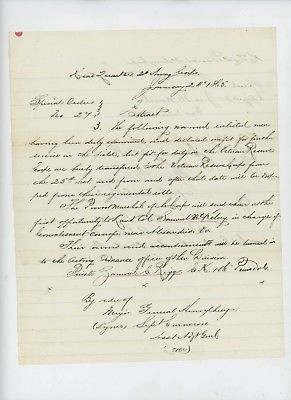 Head Quarters 2d Army Corps
January 28th 1865
Special Orders }
No 27 } Extract
3. The following named enlisted men
having been duly examined, and declared unfit for further
service in the field, but fit for duty in the Veteran Reserve
Corps are hereby transferred to the Veteran Reserve Corps from
the 25th inst, and from and after that date will be dropped
from their regimental rolls.
The Provost Marshal of the Corps will send them at the
first opportunity to Lieut Col Samuel McKelvy in charge of
Convalescent Camp near Alexandria Va
Their arms and accoutrements will be turned in
to the Acting Ordnance officer of their Division
Private E. K.
By order of
Major General Humphreys
(Signed) Sept Carncross
Asst Adjt Genl